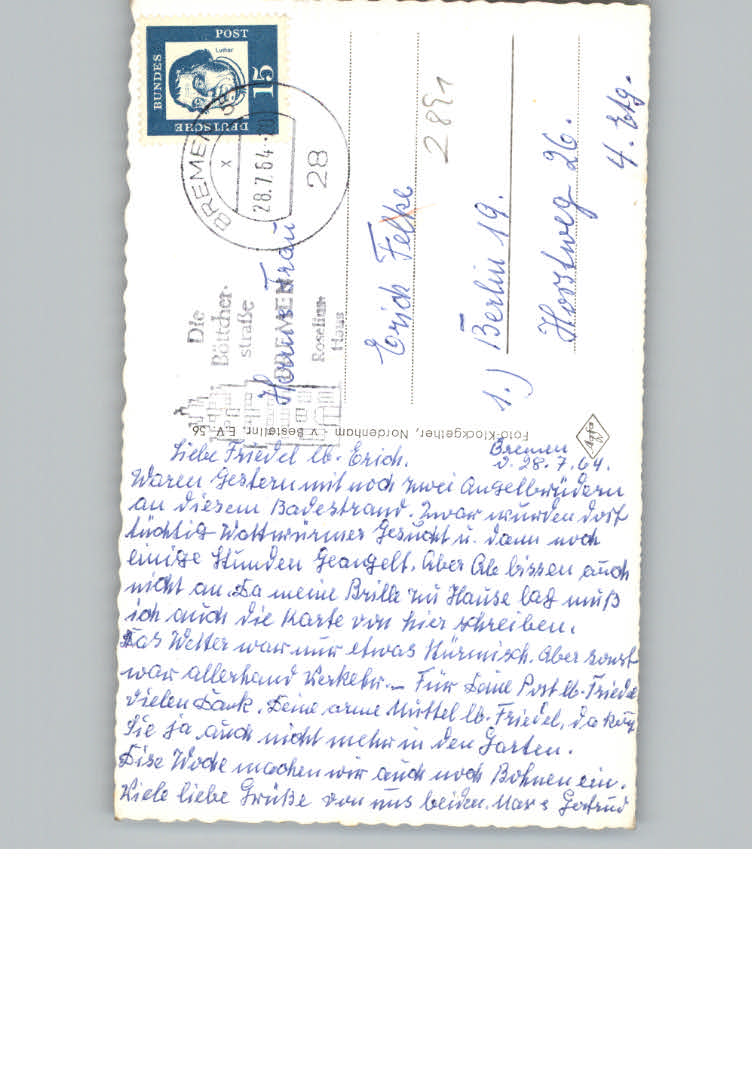 DEUTSCHE
BUNDES
POST
Luther
15
BREMEN
28.7.64
28
x
Die
Böttcher-
straße
BREMEN
Roselius-
Haus
Herrn u. Frau
Erich Felke
1.) Berlin 19.
Horstweg 26.
4. Etg.
2891
Foto-Klockgether, Nordenham - v. Bestellnr. E.V. 56
Agfa
Bremen
d. 28.7.64.
Liebe Friedel lb. Erich.
Waren Gestern mit noch zwei Angelbrüdern
an diesem Badestrand. Zwar wurden dort
tüchtig Wattwürmer Gesucht u. dann noch
einige Stunden Geangelt. Aber Ale bissen auch
nicht an. Da meine Brille zu Hause lag muß
ich auch die Karte von hier schreiben.
Das Wetter war nur etwas Stürmisch. Aber sonst
war allerhand Verkehr. – Für Deine Post lb. Friedel
vielen Dank. Deine arme Muttel lb. Friedel, da kan
Sie ja auch nicht mehr in den Garten.
Dise Woche machen wir auch noch Bohnen ein.
Viele liebe Grüße von uns beiden. Max & Gertrud